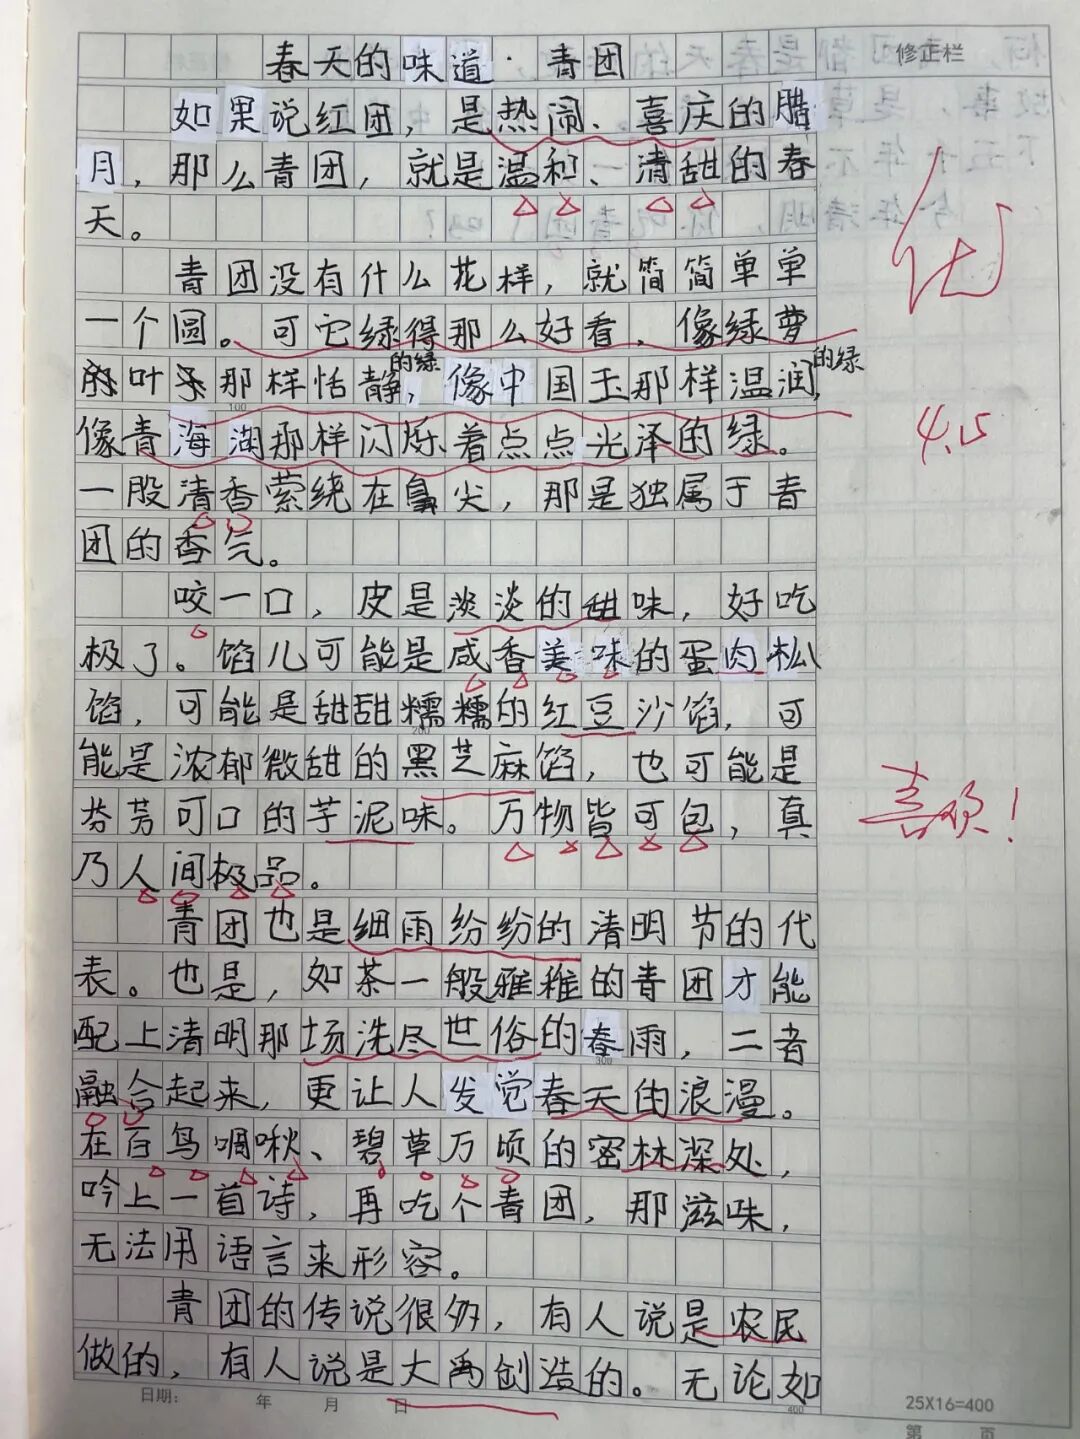 春天的味道·青团
修正栏
如果说红团，是热闹、喜庆的腊
月，那么青团，就是温和、清甜的春
天。
优
青团没有什么花样，就简简单单
一个圆。可它绿得那么好看，像绿萝
的绿
的绿
叶子那样恬静，像中国玉那样温润，
4.15
像青海湖那样闪烁着点点光泽的绿。
100
一股清香萦绕在鼻尖，那是独属于青
团的香气。
咬一口，皮是淡淡的甜味，好吃
极了。馅儿可能是咸香美味的蛋肉松
馅，可能是甜甜糯糯的红豆沙馅，可
200
能是浓郁微甜的黑芝麻馅，也可能是
芬芳可口的芋泥味。万物皆可包，真
喜欢！
乃人间极品。
青团也是细雨纷纷的清明节的代
表。也是，如茶一般雅稚的青团才能
配上清明那场洗尽世俗的春雨，二者
300
融合起来，更让人发觉春天的浪漫。
在百鸟啁啾、碧草万顷的密林深处，
吟上一首诗，再吃个青团，那滋味，
无法用语言来形容。
青团的传说很多，有人说是农民
做的，有人说是大禹创造的。无论如
日期： 年 月 日
400
25X16=400
第 页